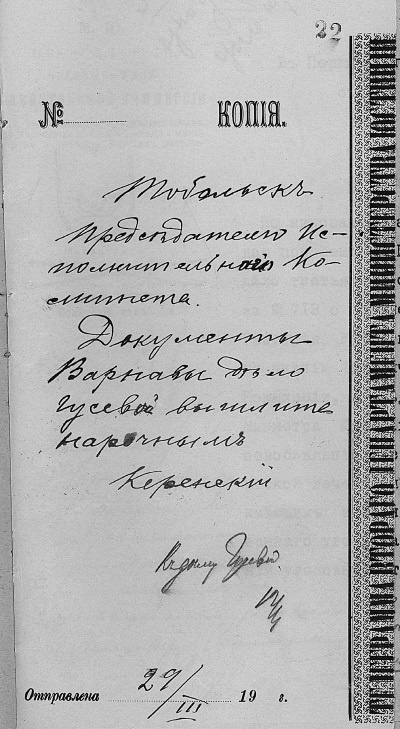 22
№ КОПІЯ.
Тобольскъ
Предсѣдателю Ис-
полнительнаго Ко-
митета.
Документы
Варнавы дѣло
Гусевой вышлите
нарочнымъ
Керенскій
Къ дѣлу Гусевой
Отправлена 29/III 19 г.